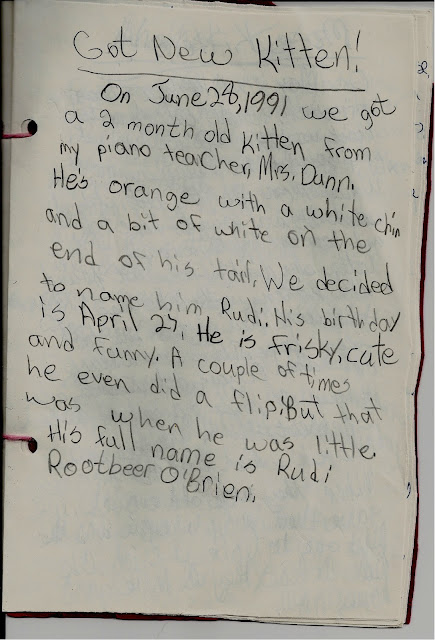 Got New Kitten!
On June 28, 1991 we got
a 2 month old kitten from
my piano teacher, Mrs. Dunn.
He's orange with a white chin
and a bit of white on the
end of his tail. We decided
to name him Rudi. His birthday
is April 27. He is frisky, cute
and funny. A couple of times
he even did a flip. But that
was when he was little.
His full name is Rudi
Rootbeer O'Brien.